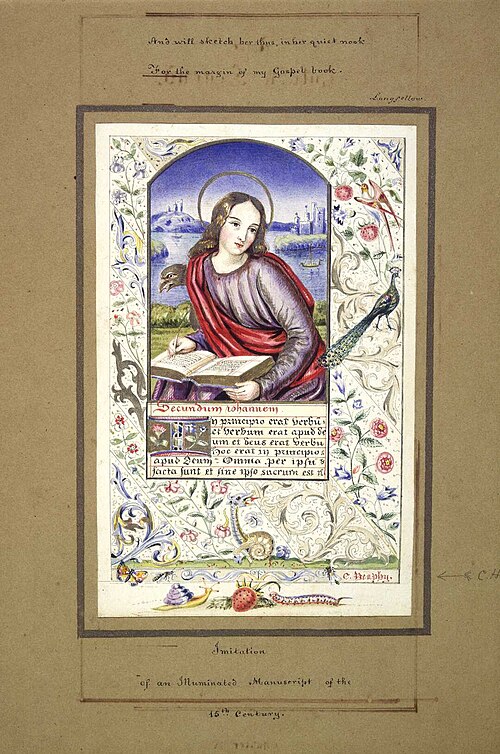 And will sketch her thus, in her quiet nook
For the margin of my Gospel book.
Longfellow.
Secundum iohannem
In principio erat verbu
et verbum erat apud de
um et deus erat verbu
hoc erat in principio
apud Deum. Omnia per ipsu
facta sunt et sine ipso
C. Murphy.
C H
Imitation
of an Illuminated Manuscript of the
15th Century.